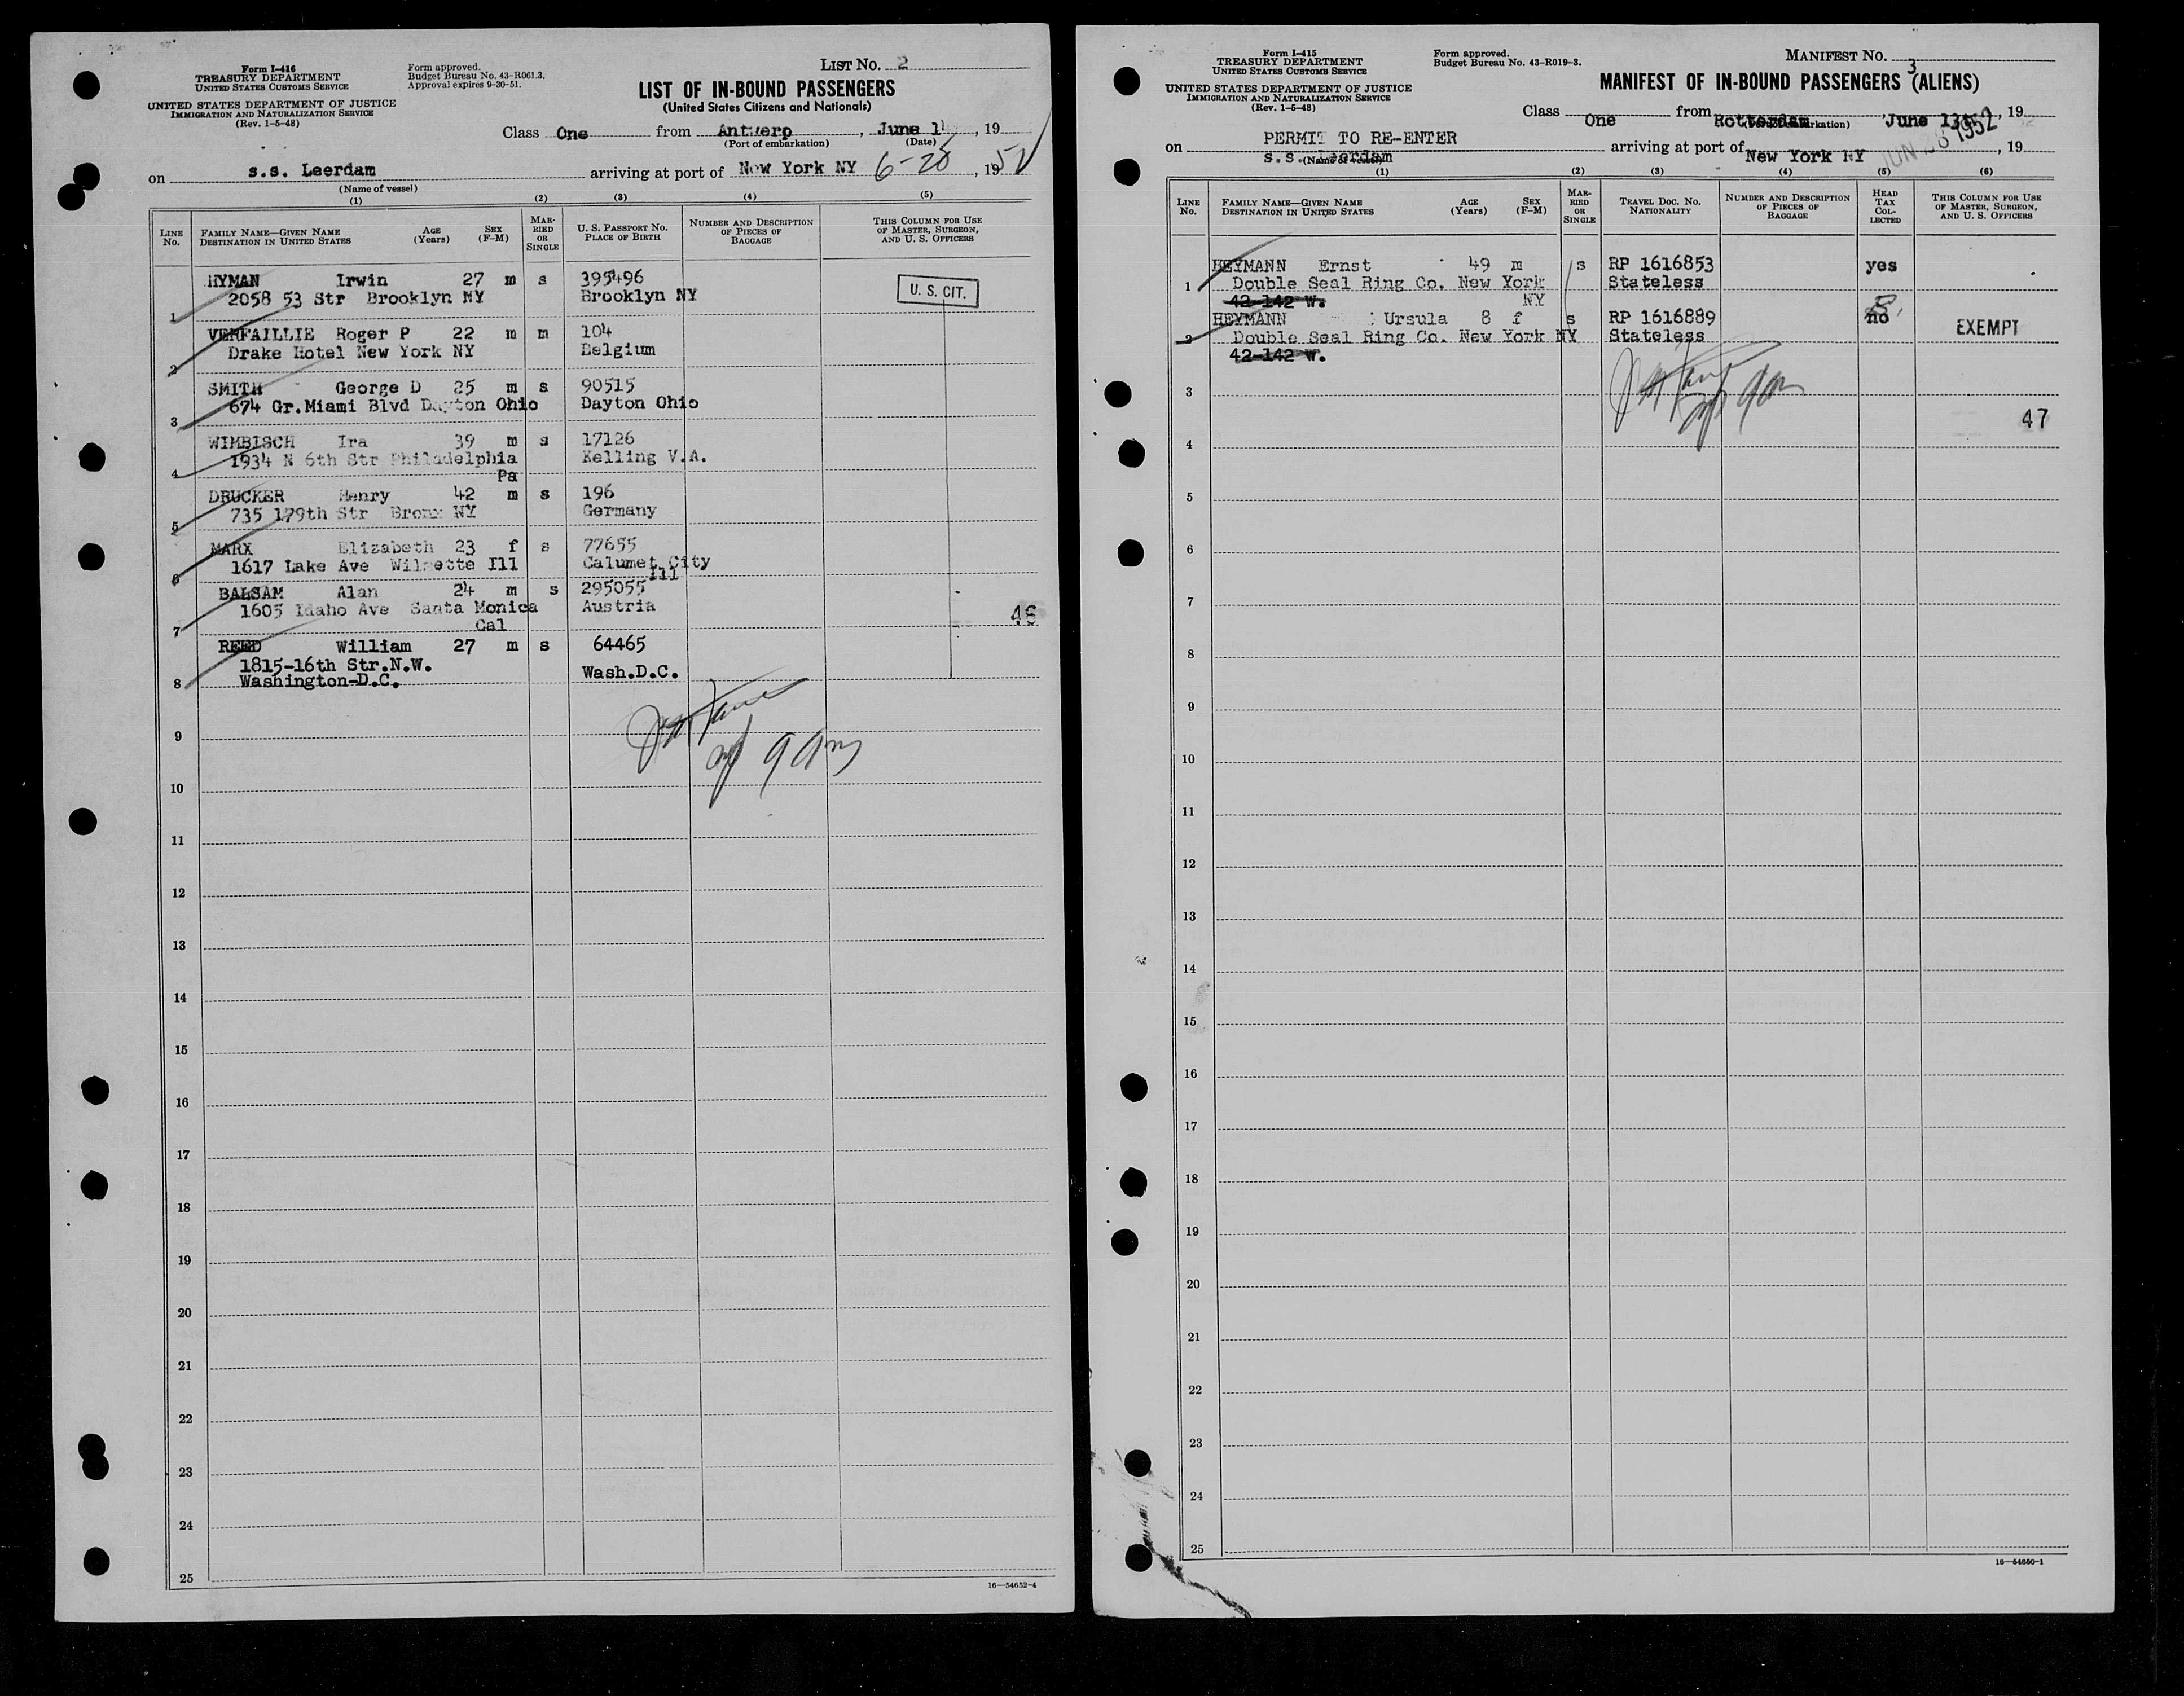 Form I-416
TREASURY DEPARTMENT
UNITED STATES CUSTOMS SERVICE
UNITED STATES DEPARTMENT OF JUSTICE
IMMIGRATION AND NATURALIZATION SERVICE
(Rev. 1-5-48)
Form approved.
Budget Bureau No. 43-R061.3.
Approval expires 9-30-51.
LIST NO. 2
LIST OF IN-BOUND PASSENGERS
(United States Citizens and Nationals)
Class One from Antwerp, June 1, 19
(Port of embarkation) (Date)
on s.s. Leerdam arriving at port of New York NY 6-28, 1952
(Name of vessel)
(1) (2) (3) (4) (5)
LINE No. FAMILY NAME—GIVEN NAME DESTINATION IN UNITED STATES AGE (Years) SEX (F-M) MARRIED OR SINGLE U. S. PASSPORT NO. PLACE OF BIRTH NUMBER AND DESCRIPTION OF PIECES OF BAGGAGE THIS COLUMN FOR USE OF MASTER, SURGEON, AND U. S. OFFICERS
HYMAN Irwin 27 m s 395496
1 2058 53 Str Brooklyn NY Brooklyn NY
U. S. CIT.
VERFAILLIE Roger P 22 m m 104
2 Drake Hotel New York NY Belgium
SMITH George D 25 m s 90515
3 674 Gr.Miami Blvd Dayton Ohio Dayton Ohio
WIMBISCH Ira 39 m s 17126
4 1934 N 6th Str Philadelphia Pa Kelling V.A.
DRUCKER Henry 42 m s 196
5 735 179th Str Bronx NY Germany
MARX Elizabeth 23 f s 77655
6 1617 Lake Ave Wilmette Ill Calumet City Ill
BALSAM Alan 24 m s 295055
7 1605 Idaho Ave Santa Monica Cal Austria
46
REED William 27 m s 64465
1815-16th Str.N.W.
8 Washington-D.C. Wash.D.C.
9
10
11
12
13
14
15
16
17
18
19
20
21
22
23
24
25
16—54652-4
Form I-415
TREASURY DEPARTMENT
UNITED STATES CUSTOMS SERVICE
UNITED STATES DEPARTMENT OF JUSTICE
IMMIGRATION AND NATURALIZATION SERVICE
(Rev. 1-5-48)
Form approved.
Budget Bureau No. 43-R019-3.
MANIFEST NO. 3
MANIFEST OF IN-BOUND PASSENGERS (ALIENS)
Class One from Rotterdam, June 13, 19
(Port of embarkation)
PERMIT TO RE-ENTER
on s.s. Leerdam arriving at port of New York NY JUN 28 1952, 19
(Name of vessel)
(1) (2) (3) (4) (5) (6)
LINE No. FAMILY NAME—GIVEN NAME DESTINATION IN UNITED STATES AGE (Years) SEX (F-M) MARRIED OR SINGLE TRAVEL DOC. NO. NATIONALITY NUMBER AND DESCRIPTION OF PIECES OF BAGGAGE HEAD TAX COLLECTED THIS COLUMN FOR USE OF MASTER, SURGEON, AND U. S. OFFICERS
HEYMANN Ernst 49 m s RP 1616853 yes
1 Double Seal Ring Co. New York NY Stateless
42-142 W.
HEYMANN Ursula 8 f s RP 1616889 no EXEMPT
2 Double Seal Ring Co. New York NY Stateless
42-142 W.
3
47
4
5
6
7
8
9
10
11
12
13
14
15
16
17
18
19
20
21
22
23
24
25
16—54650-1